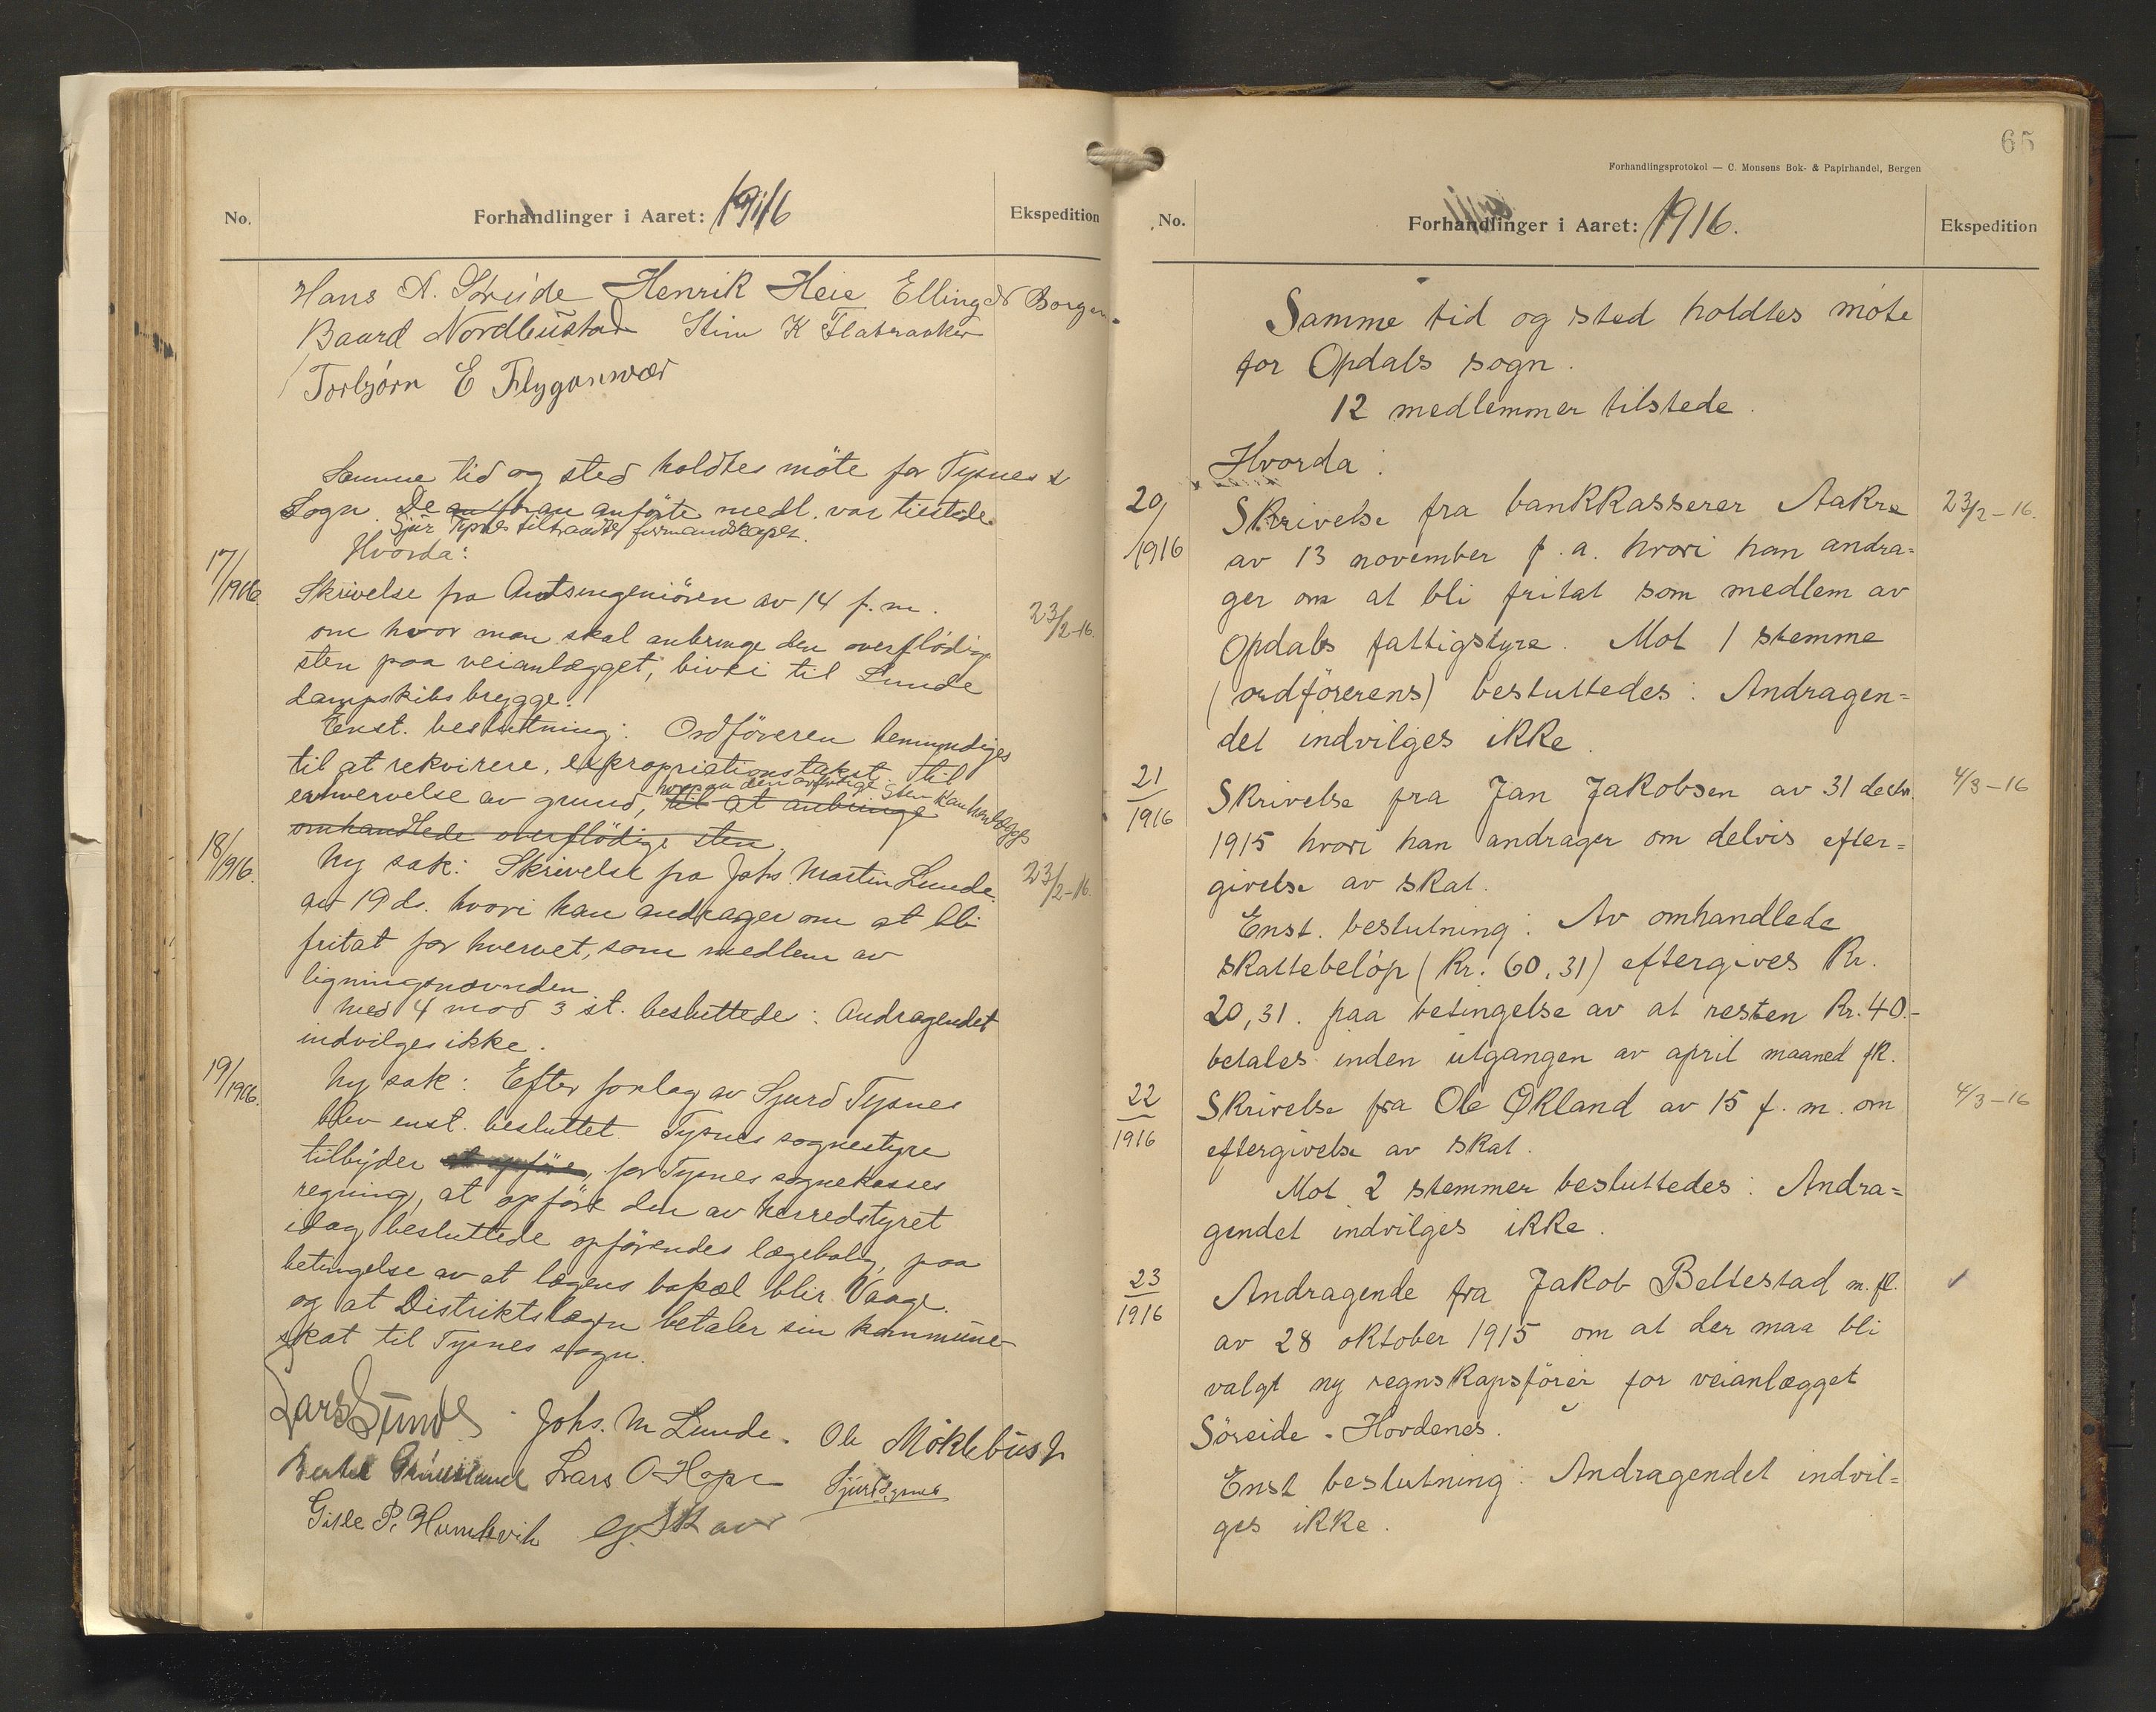 No.
Forhandlinger i Aaret: 1916
Ekspedition
Hans A. Henrik Heie Elling Borgen
Baard Nordbustad K
Torbjørn E Flyganvær
Samme tid og sted holdtes möte for Tysnes
Sogn. De anförte medl. var tilstede.
Sjur Tysnes tiltraadte formandskapet.
Hvorda:
17/1916
Skrivelse fra Amtsingeniören av 14 f. m.
23/2-16.
om hvor man skal anbringe den overflödige
sten paa veianlægget, bivei til Lunde
dampskibsbrygge.
Enst. beslutning: Ordföreren bemyndiges
til at rekvirere, expropriationstakst til
hvorpaa den overflödige sten kan henlægges
erhvervelse av grund, til at anbringe
omhandlede overflödige sten.
18/1916.
Ny sak: Skrivelse fra Johs. Martin Lunde
23/2-16.
av 19 ds. hvori han andrager om at bli
fritat for hvervet, som medlem av
ligningsnævnden
Med 4 mod 3 st. besluttede: Andragendet
indvilges ikke.
19/1916.
Ny sak: Efter forslag av Sjurd Tysnes
blev enst. besluttet. Tysnes sognestyre
tilbyder for Tysnes sognekasses
regning, at opföre den av herredstyret
idag besluttede opförendes lægebolig, paa
betingelse av at lægens bopæl blir Vaage.
og at Distriktslægen betaler sin kommune-
skat til Tysnes sogn.
Lars Sunde Johs. M Lunde. Ole Möklebust
Lars O Hope Sjur Tysnes
Gisle P. Humlevik
65
Forhandlingsprotokol — C. Monsens Bok- & Papirhandel, Bergen
No.
Forhandlinger i Aaret: 1916.
Ekspedition
Samme tid og sted holdtes möte
for Opdals sogn.
12 medlemmer tilstede.
Hvorda:
20/1916
Skrivelse fra bankkasserer Aakre
23/2-16.
av 13 november f.a. hvori han andra=
ger om at bli fritat som medlem av
Opdals fattigstyre. Mot 1 stemme
(ordförerens) besluttedes: Andragen=
det indvilges ikke.
21
1916
Skrivelse fra Jan Jakobsen av 31 decbr.
4/3-16
1915 hvori han andrager om delvis efter=
givelse av skat.
Enst. beslutning: Av omhandlede
skattebelöp (Kr. 60,31) eftergives Kr.
20,31. paa betingelse av at resten Kr. 40.-
betales inden utgangen av april maaned fk.
22
1916
Skrivelse fra Ole Økland av 15 f. m. om
4/3-16
eftergivelse av skat.
Mot 2 stemmer besluttedes: Andra=
gendet indvilges ikke.
23
1916
Andragende fra Jakob Beltestad m. fl.
av 28 oktober 1915 om at der maa bli
valgt ny regnskapsförer for veianlægget
Söreide - Hovdenes.
Enst beslutning: Andragendet indvil=
ges ikke.